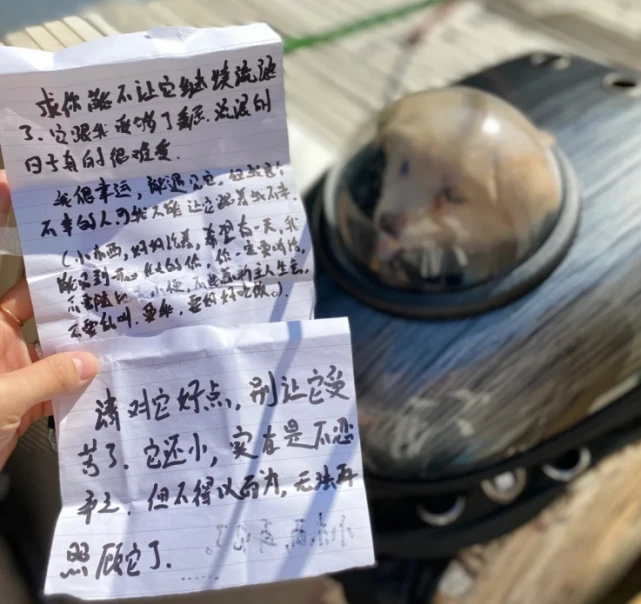 求你能不让它继续流浪
了.它跟我受够了委屈.流浪的
日子真的很难受.
我很幸运,能遇见它.但我是个
不幸的人可我不能让它跟着我不幸
(小东西,好好活着,希望有一天,我
能见到的你,你一定要听话,
不要随地大小便,不要惹新主人生气,
不要乱叫.要乖,要好好吃饭。)
请对它好点,别让它受
苦了.它还小,实在是不忍
弃之.但不得以而为,无法再
照顾它了.
......